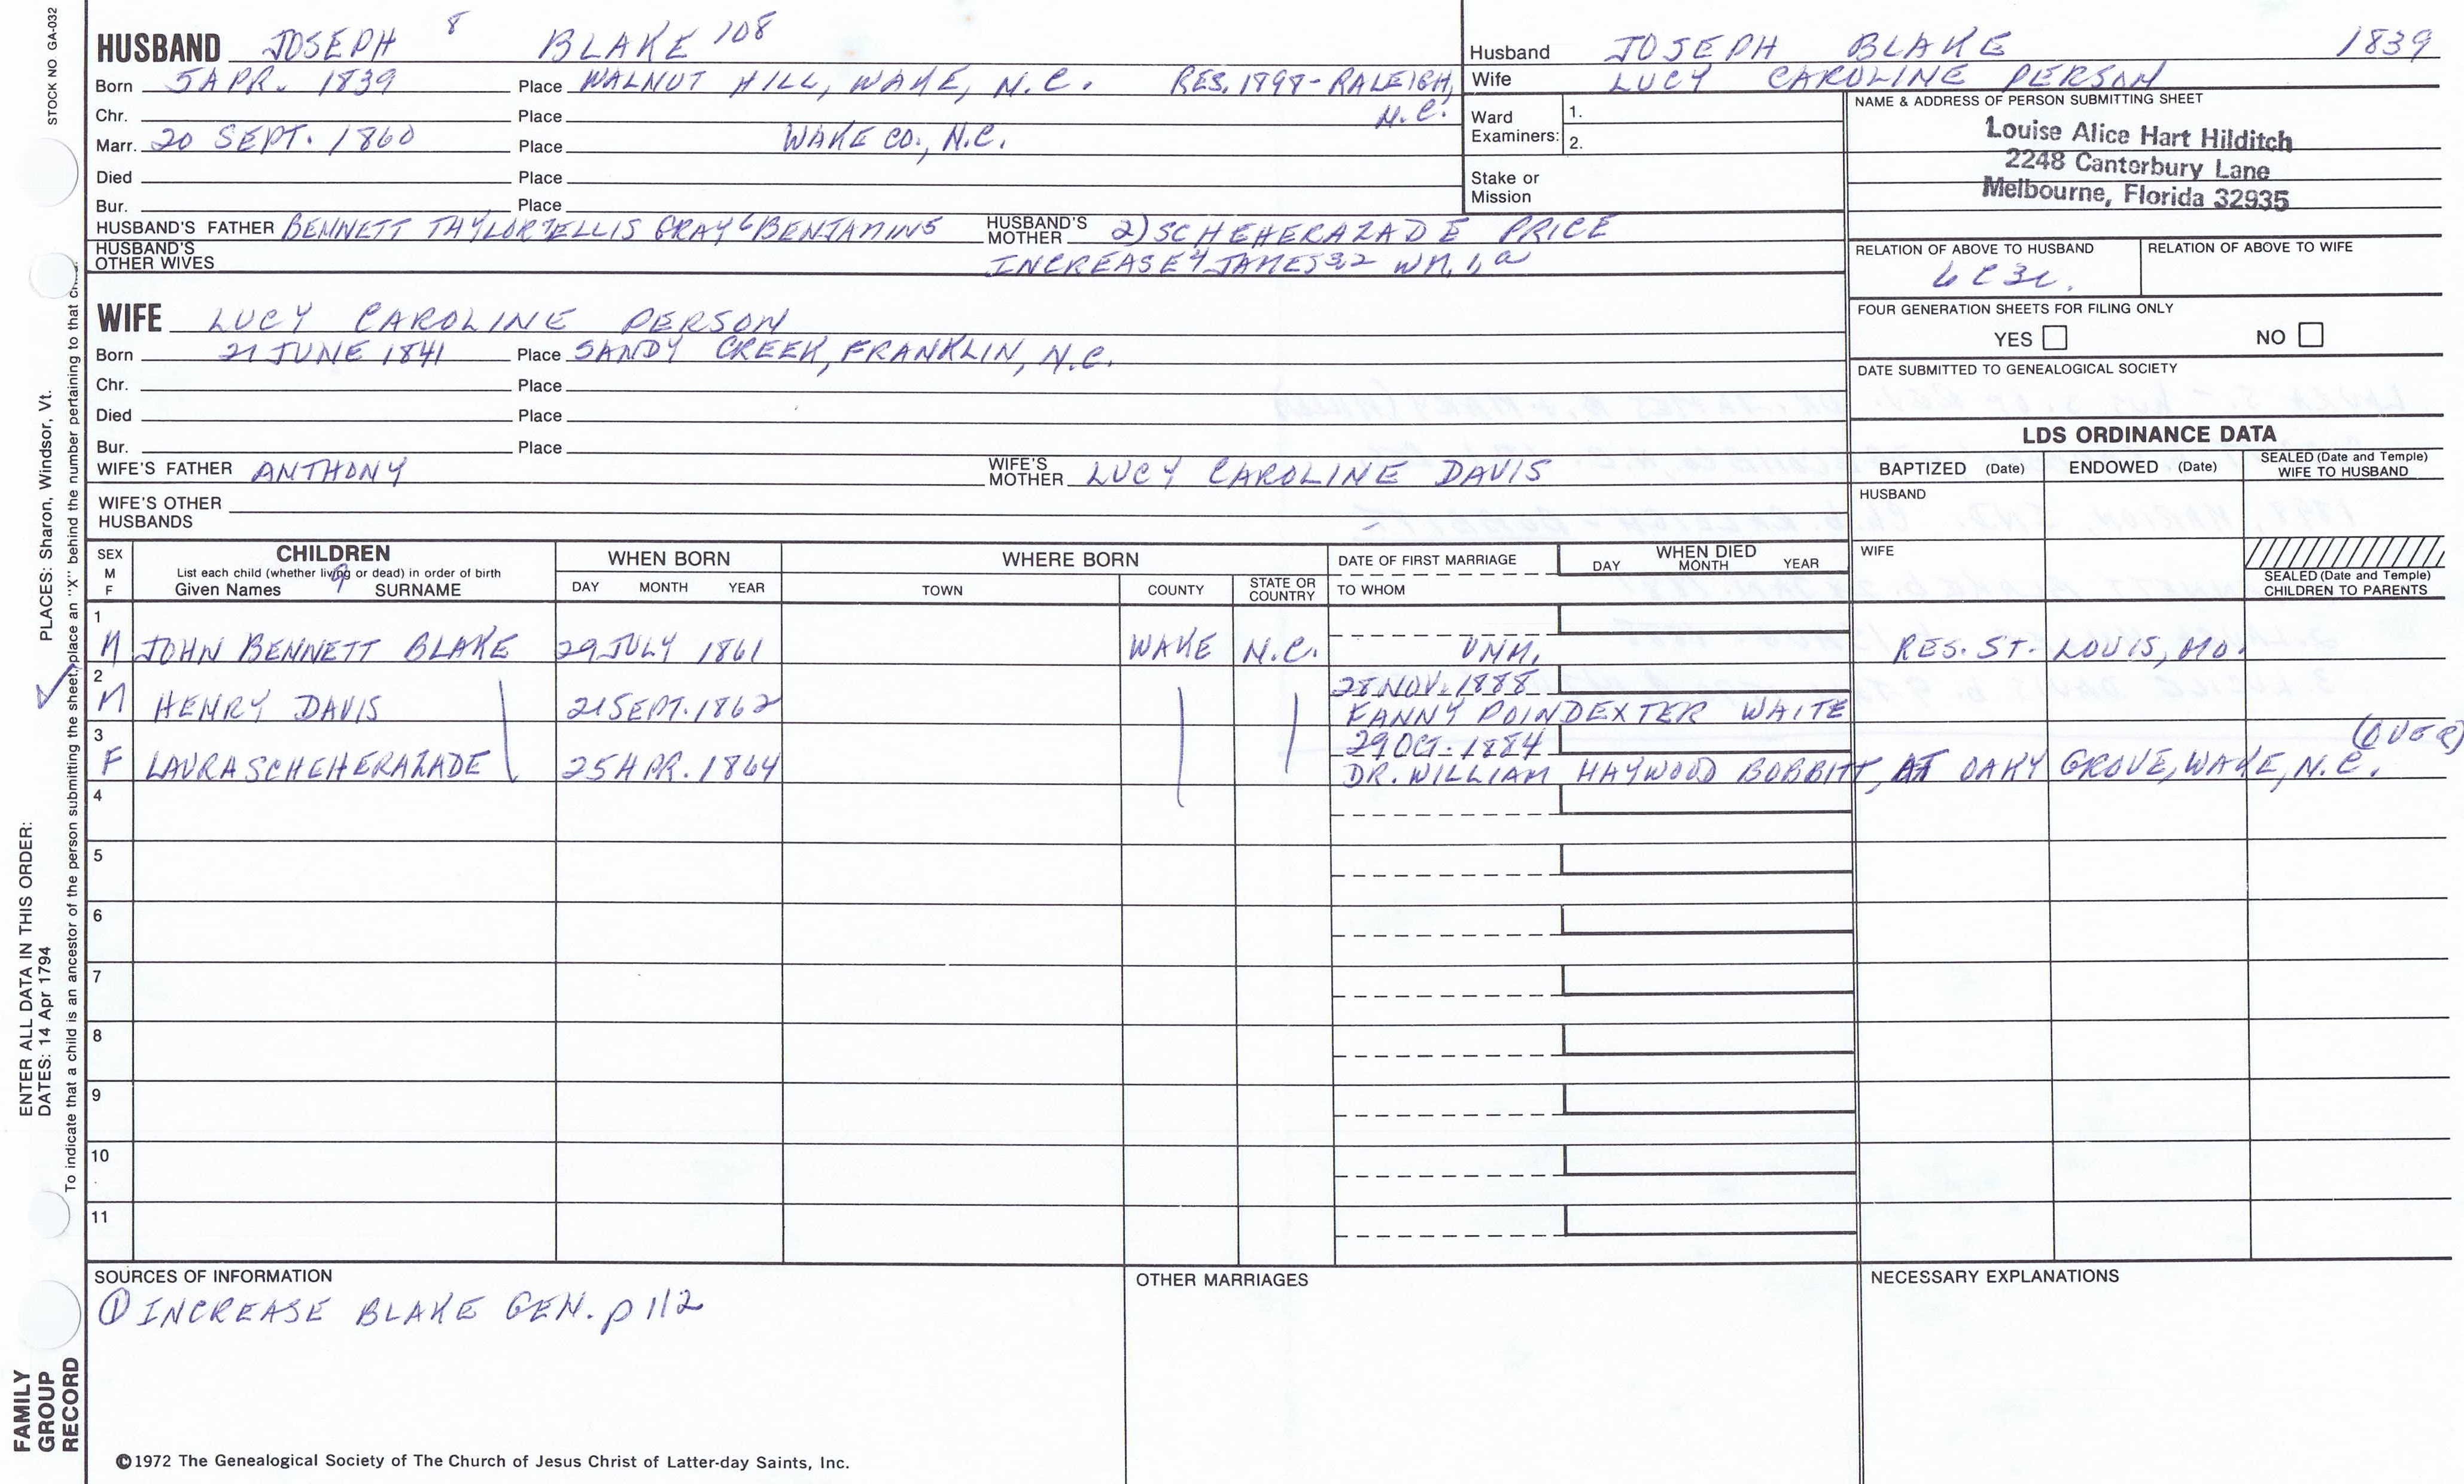 STOCK NO GA-032
HUSBAND JOSEPH 8 BLAKE 108
Born 5 APR. 1839 Place WALNUT HILL, WAKE, N.C. RES. 1898 - RALEIGH,
Chr. Place N.C.
Marr. 20 SEPT. 1860 Place WAKE CO., N.C.
Died Place
Bur. Place
HUSBAND'S FATHER BENNETT TAYLOR 7 ELLIS GRAY 6 BENJAMIN 5 HUSBAND'S MOTHER 2) SCHEHERAZADE PRICE
HUSBAND'S OTHER WIVES INCREASE 4 JAMES 3,2 WM. 1, a
Husband JOSEPH BLAKE 1839
Wife LUCY CAROLINE PERSON
Ward Examiners: 1.
2.
Stake or Mission
NAME & ADDRESS OF PERSON SUBMITTING SHEET
Louise Alice Hart Hilditch
2248 Canterbury Lane
Melbourne, Florida 32935
RELATION OF ABOVE TO HUSBAND RELATION OF ABOVE TO WIFE
6C3r.
FOUR GENERATION SHEETS FOR FILING ONLY
YES NO
DATE SUBMITTED TO GENEALOGICAL SOCIETY
WIFE LUCY CAROLINE PERSON
Born 21 JUNE 1841 Place SANDY CREEK, FRANKLIN, N.C.
Chr. Place
Died Place
Bur. Place
WIFE'S FATHER ANTHONY WIFE'S MOTHER LUCY CAROLINE DAVIS
WIFE'S OTHER HUSBANDS
LDS ORDINANCE DATA
BAPTIZED (Date) ENDOWED (Date) SEALED (Date and Temple) WIFE TO HUSBAND
HUSBAND
WIFE
SEALED (Date and Temple) CHILDREN TO PARENTS
SEX M F CHILDREN WHEN BORN WHERE BORN DATE OF FIRST MARRIAGE WHEN DIED
List each child (whether living or dead) in order of birth
9
Given Names SURNAME DAY MONTH YEAR TOWN COUNTY STATE OR COUNTRY TO WHOM DAY MONTH YEAR
1
M JOHN BENNETT BLAKE 29 JULY 1861 WAKE N.C. UNM. RES. ST. LOUIS, MO.
2 28 NOV. 1888
M HENRY DAVIS 21 SEPT. 1862 FANNY POINDEXTER WAITE
3 29 OCT. 1884 (OVER)
F LAURA SCHEHERAZADE 25 APR. 1864 DR. WILLIAM HAYWOOD BOBBITT, AT OAKY GROVE, WAKE, N.C.
4
5
6
7
8
9
10
11
SOURCES OF INFORMATION
① INCREASE BLAKE GEN. p 112
OTHER MARRIAGES
NECESSARY EXPLANATIONS
©1972 The Genealogical Society of The Church of Jesus Christ of Latter-day Saints, Inc.
FAMILY GROUP RECORD
ENTER ALL DATA IN THIS ORDER:
DATES: 14 Apr 1794
PLACES: Sharon, Windsor, Vt.
To indicate that a child is an ancestor of the person submitting the sheet, place an "X" behind the number pertaining to that